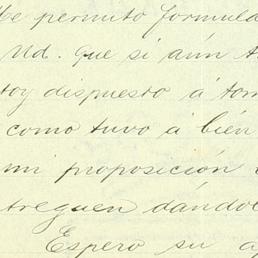 Me permito formula
Ud. que si aún t
toy dispuesto á tom
como tuvo á bien
mi proposición
treguen dándol
Espero su a